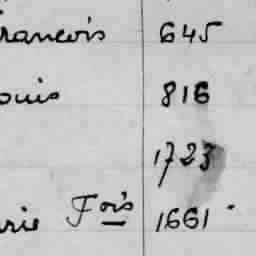 francois 645
ouis 816
1723
rie Fois 1661